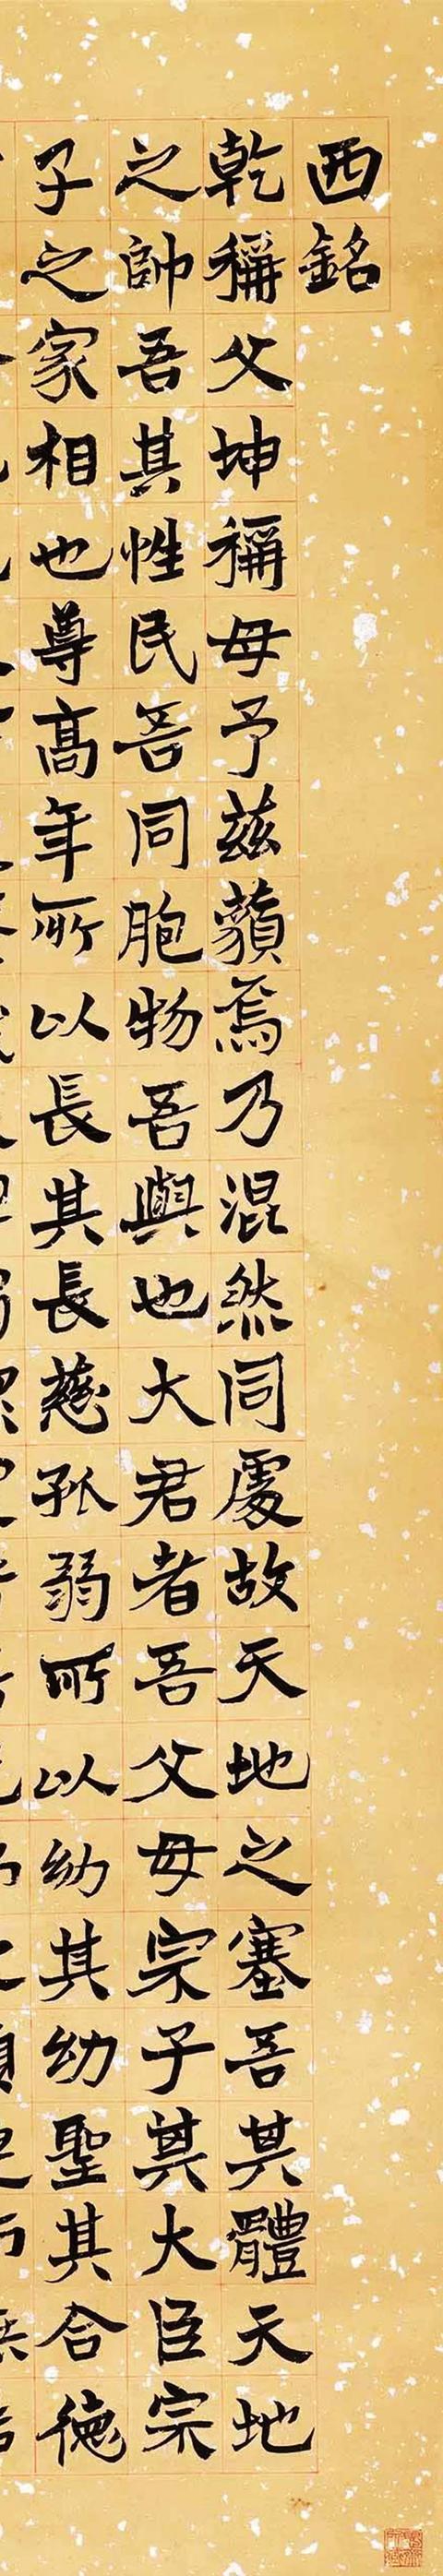 西銘
乾稱父坤稱母予茲藐焉乃混然同處故天地之塞吾其體天地
之帥吾其性民吾同胞物吾與也大君者吾父母宗子其大臣宗
子之家相也尊髙年所以長其長慈孤弱所以幼其幼聖其合德